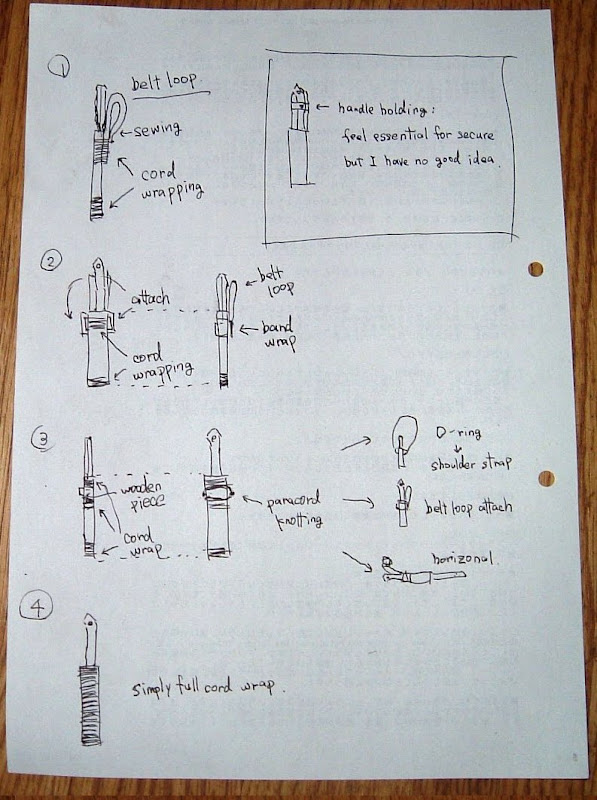 1
belt loop
sewing
cord
wrapping
handle holding:
feel essential for secure
but I have no good idea.
2
attach
cord
wrapping
belt
loop
band
wrap
3
wooden
piece
cord
wrap
paracord
knotting
D-ring
shoulder strap
belt loop attach
horizonal.
4
simply full cord wrap.